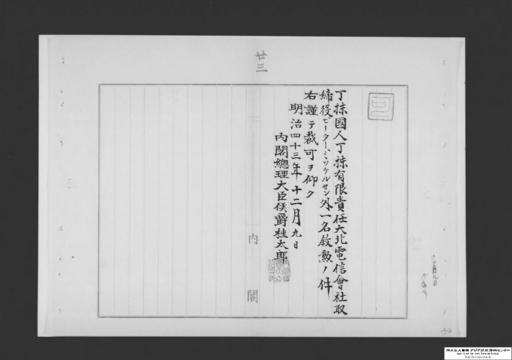 廿三
可
丁抹國人丁抹有限責任大北電信會社取
締役ピーター、ミッケルセン外一名敍勲ノ件
右謹テ裁可ヲ仰ク
明治四十三年十二月九日
内閣總理大臣侯爵桂太郎
内閣